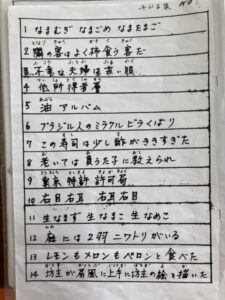 NO1
1 なまむぎ なまごめ なまたまご
2 隣の客はよく柿食う客だ
3 夫婦は
4 低所得者層
5 油 アルバム
6 ブラジル人のミラクル ビラくばり
7 この寿司は少し酢がききすぎた
8 老いては負うた子に教えられ
9 東京 特許 許可局
10 右目右耳 右耳右目
11 生なまず 生なまこ 生なめこ
12 庭には2羽 ニワトリがいる
13 レモンもメロンもペロンと食べた
14 坊主が屏風に上手に坊主の絵を描いた